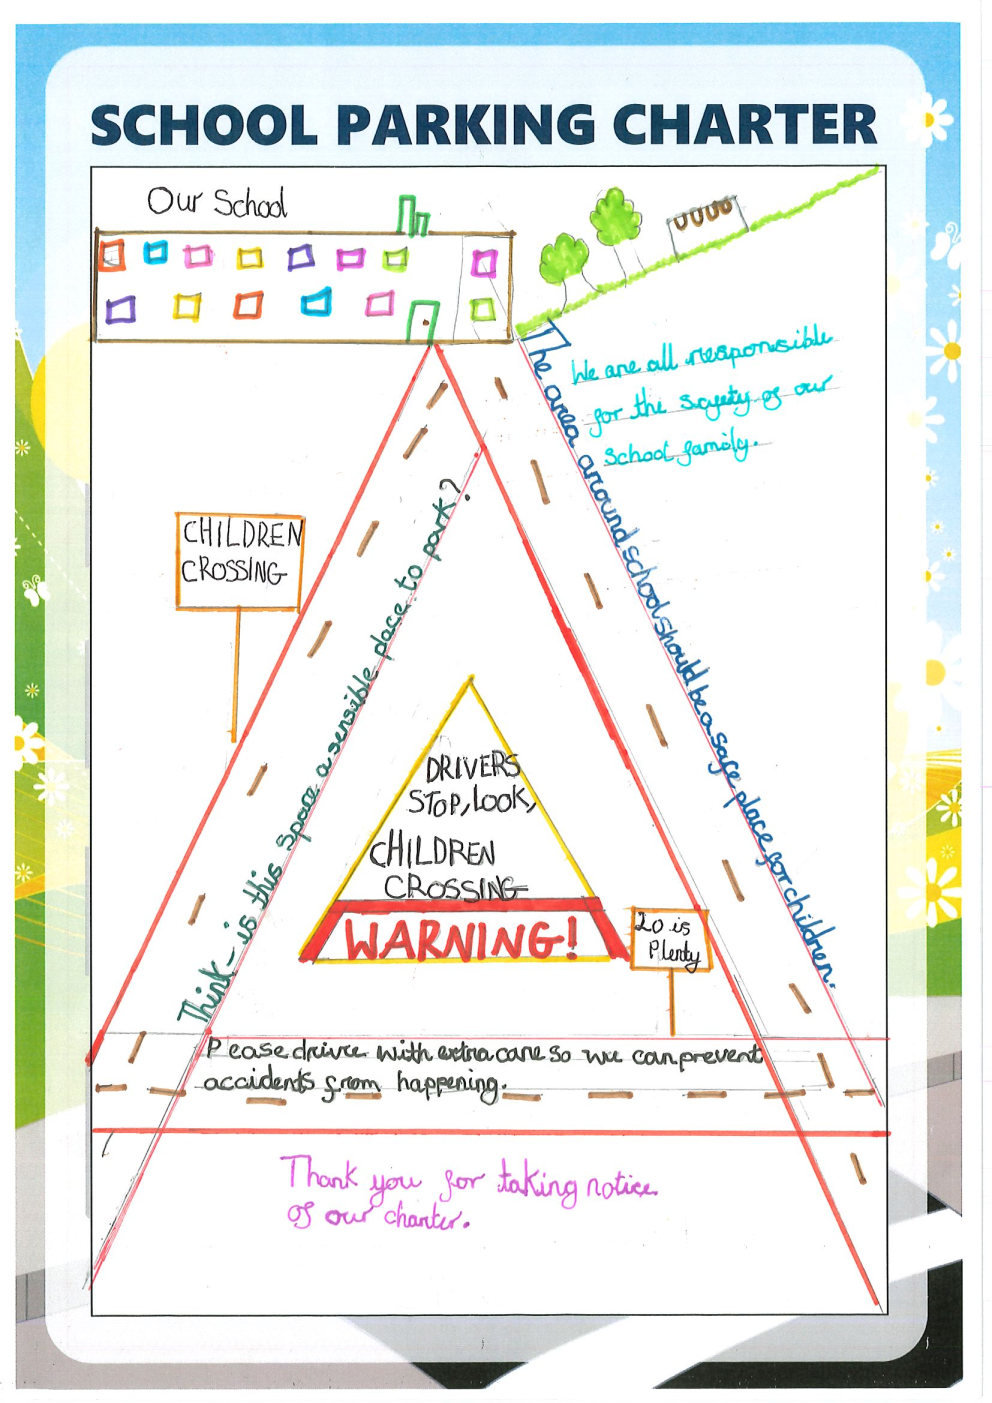 SCHOOL PARKING CHARTER
Our School
We are all responsible
for the safety of our
school family.
The area around school should be a safe place for children.
CHILDREN
CROSSING
Think - is this space a sensible place to park?
DRIVERS
STOP, LOOK,
CHILDREN
CROSSING
WARNING!
20 is
Plenty
Please drive with extra care so we can prevent
accidents from happening.
Thank you for taking notice
of our charter.